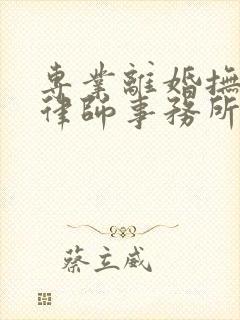 專業離婚撫
律師事務所
蔡立威